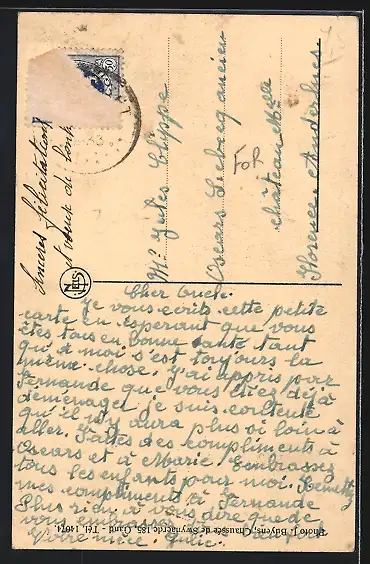 Sincères félicitations
Mr Jules Clippe
Oscars Lebecq ancien
château Mlle
Florence. Anderlues
FOR
NELS
Cher Oncle.
Je vous écrits cette petite
carte en espérant que vous
êtes tous en bonne santé tant
qu'à moi s'est toujours la
même chose. J'ai appris par
Fernande que vous étiez déjà
déménager je suis contente
qu'il n'y aura plus si loin à
aller. Faites des compliments à
Oscars et à Marie Embrassez
tous les enfants pour moi.
mes compliments à Fernande
Plus rien à vous dire que de
vous
Votre nièce.
Photo J. Buyens, Chaussée de Swynaerde, 185, Gand - Tél. 14071